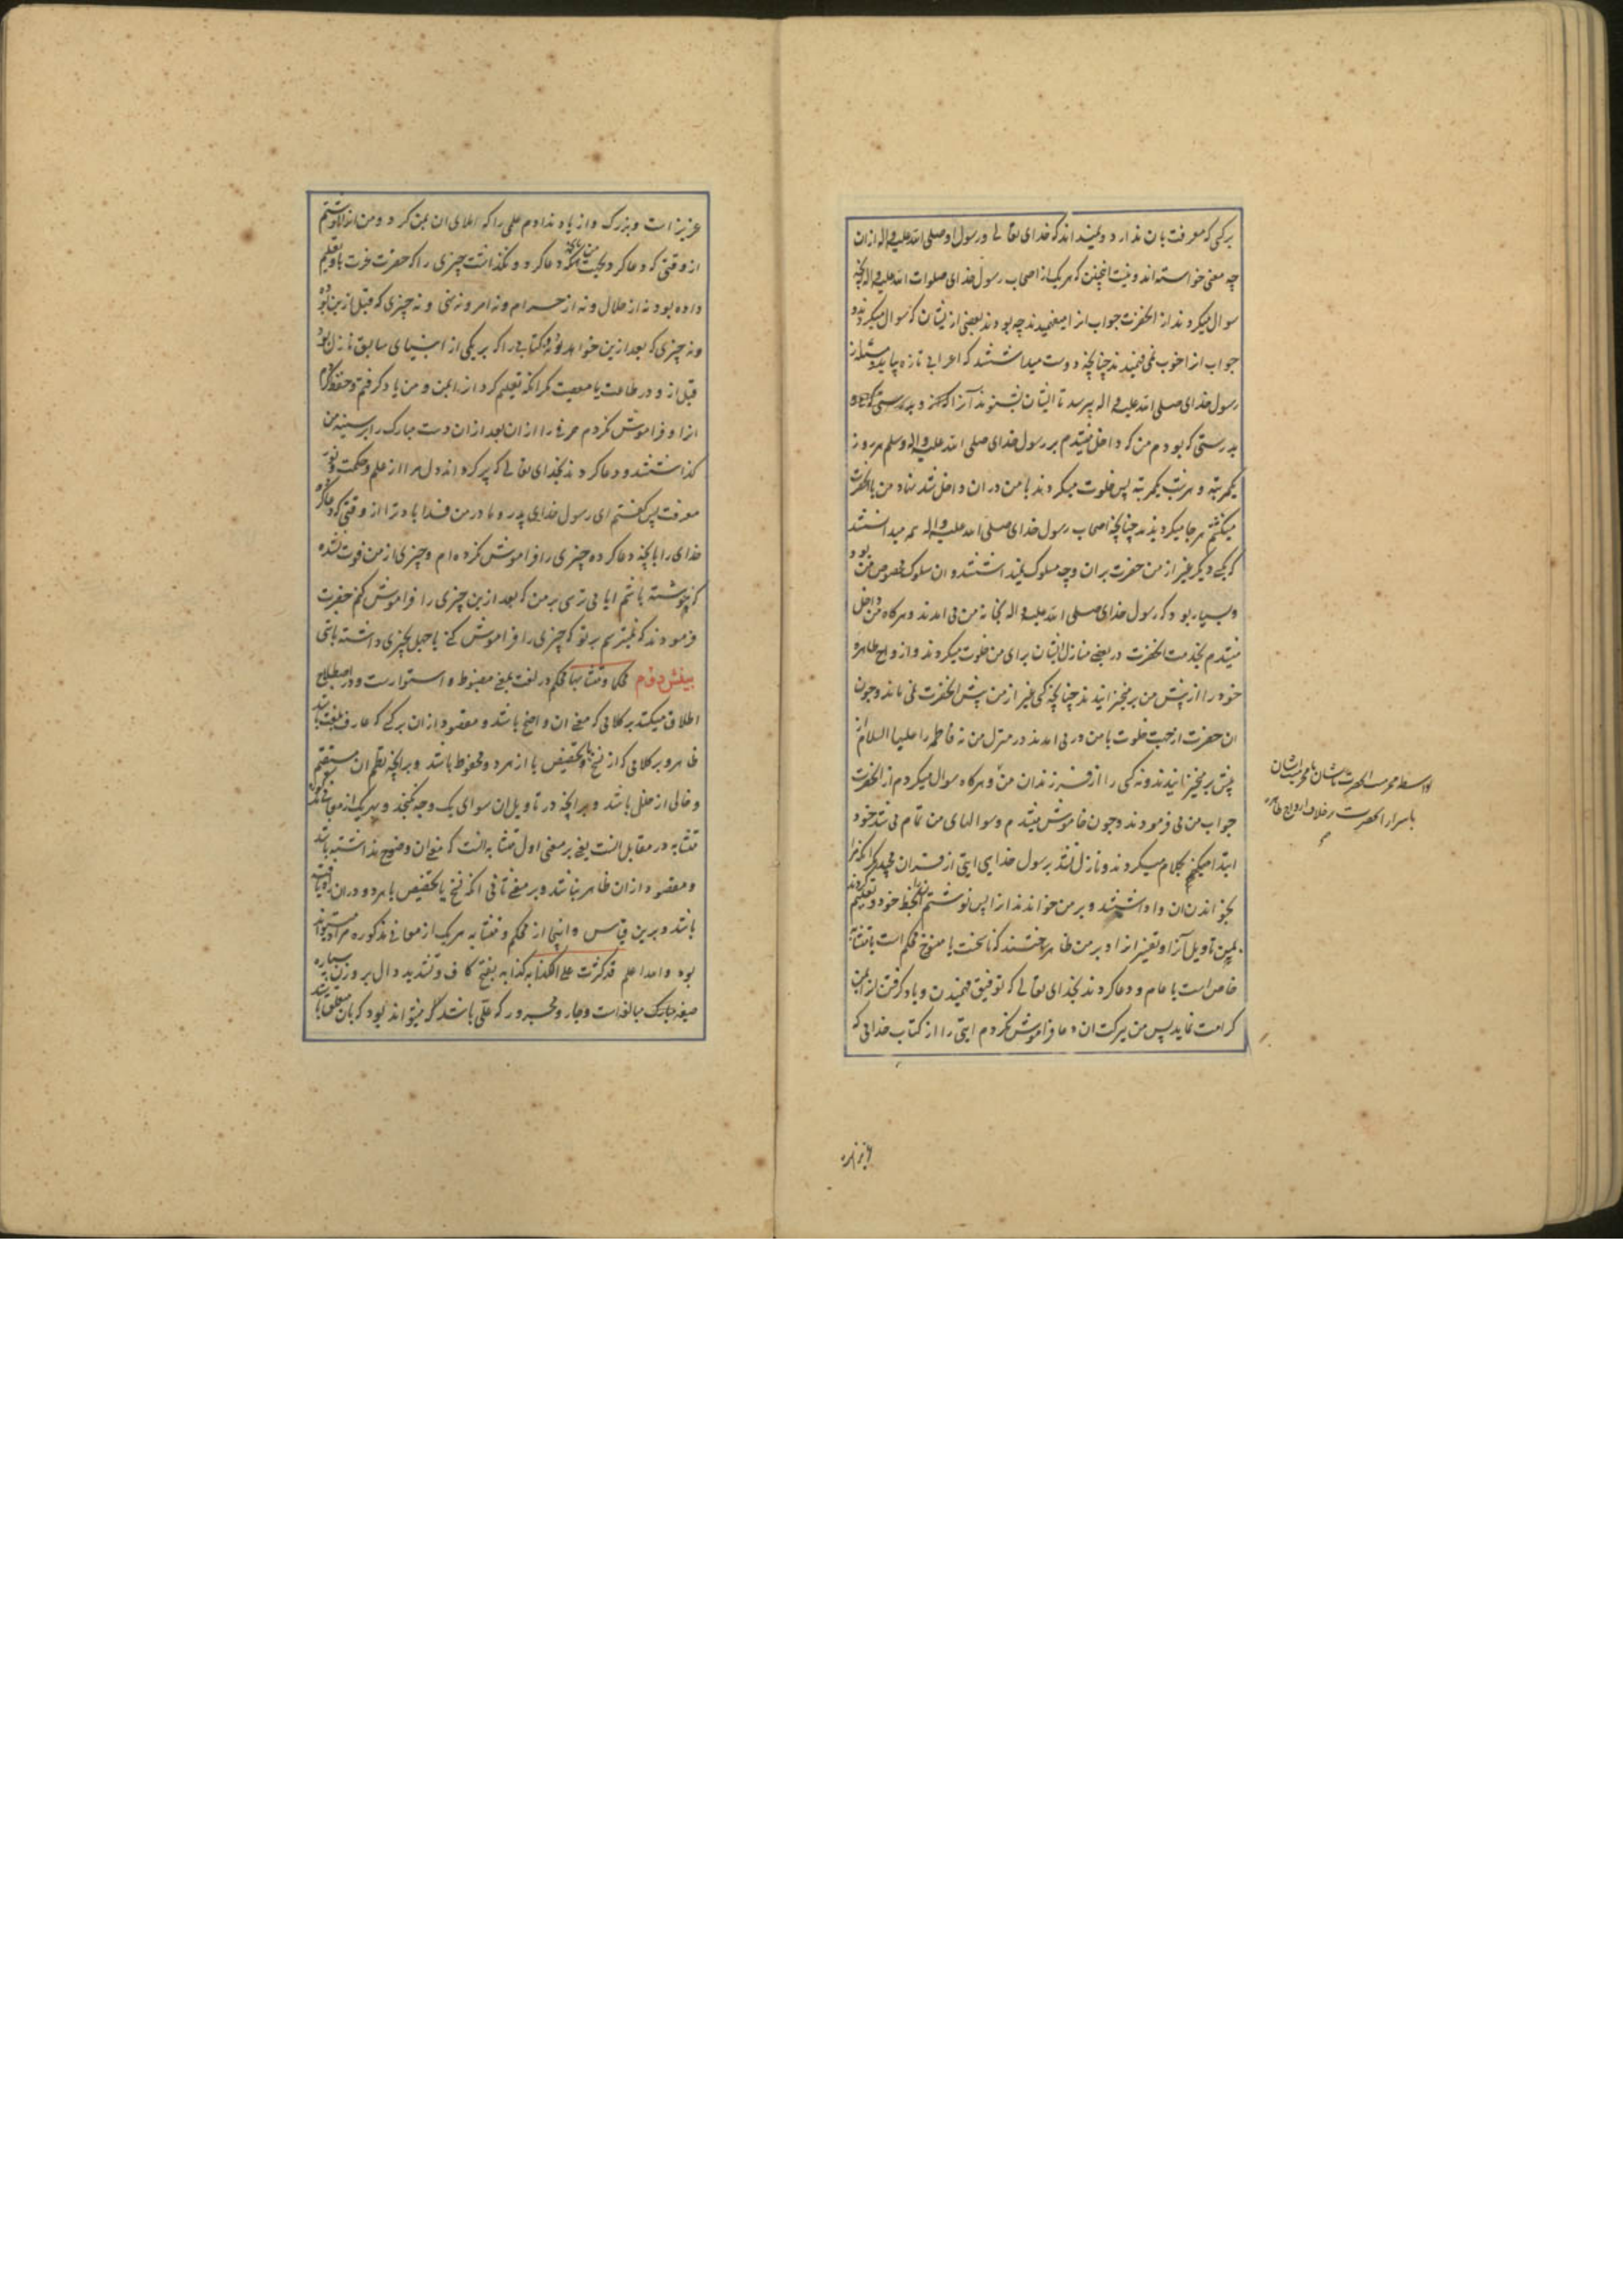 برکسی که معرفت بان ندارد و نمیداند که خدای تعالی و رسول او صلی الله علیه و اله ازان
چه معنی خواسته اند و نیست اینچنین که هر یک از اصحاب رسول خدای صلوات الله علیه و اله انچه
سوال میکردند از انحضرت جواب انرا میفهمیدند چه بودند بعضی از ایشان که سوال میکردند و
جواب انرا خوب نمی فهمیدند چنانچه دوست میداشتند که اعرابی تازه بیاید و مسئله از
رسول خدای صلی الله علیه و اله پرسد تا ایشان بشنوند آنرا
بدرستی که بودم من که داخل میشدم بر رسول خدای صلی الله علیه و اله وسلم هر روز
یکمرتبه و هر شب یکمرتبه پس خلوت میکردند با من دران و داخل شد نهاد من با انحضرت
میکشتم هر جا میکردیدند چنانچه اصحاب رسول خدای صلی الله علیه و اله هم میدانستند
که بکسی دیگر غیر از من حضرت بران وجه سلوک نمیداشتند و ان سلوک مخصوص من بود
و بسیار بود که رسول خدای صلی الله علیه و اله بخانه من می امدند و هرگاه من داخل
میشدم بخدمت انحضرت در بعضی منازل ایشان برای من خلوت میکردند و ازواج طاهره
خود را از پیش من برمیخیزانیدند چنانچه کسی غیر از من پیش انحضرت نمی ماند و چون
ان حضرت از جهت خلوت با من در می امدند در منزل من نه فاطمه را علیها السلام از
پیش برمیخیزانیدند و نه کسی را از فرزندان من و هرگاه سوال میکردم از انحضرت
جواب من می فرمودند و چون خاموش میشدم و سوالهای من تمام می شد خود
ابتدا میکردند و نازل نشد برسول خدای ایتی از قران مجید مگر انکه مرا
بخواندن ان واداشتند و بر من خواندند انرا پس نوشتم انرا بخط خود و تعلیم کردند
بمن تاویل آنرا و تفسیر انرا و بر من ظاهر ساختند که ناسخست یا منسوخ محکم است یا متشابه
خاص است یا عام و دعا کردند بخدای تعالی که توفیق فهمیدن و یاد گرفتن انرا بمن
کرامت نماید پس من ببرکت ان دعا فراموش نکردم ایتی را از کتاب خدائی که
بواسطه محرمیت انحضرت با ایشان یا محرمیت ایشان
باسرار انحضرت بر خلاف ازواج طاهره
عزیز است و بزرک و از یاد ندادم علمی را که املای ان بمن کرد و من انرا نوشتم
از وقتی که دعا کرد بجهت من بانکه دعا کرد و نکذاشت چیزی را که حضرت عزت باو تعلیم
داده بود نه از حلال و نه از حرام و نه امر و نه نهی و نه چیزی که قبل ازین بود
و نه چیزی که بعد ازین خواهد بود و نه کتابی را که بر یکی از انبیای سابق نازل بود
قبل از و در طاعت یا معصیت مکر انکه تعلیم کرد انرا بمن و من یاد کرفتم و حفظ کردم
انرا و فراموش نکردم حرفی را از ان بعد ازان دست مبارک را بر سینه من
کذاشتند و دعا کردند بخدای تعالی که پر کرداند دل مرا از علم و حکمت و نور
معرفت پس کفتم ای رسول خدای پدر و مادر من فدا باد ترا از وقتی که دعا کرده
خدای را بانچه دعا کرده چیزی را فراموش نکرده ام و چیزی از من فوت نشده
که ننوشته باشم ایا می ترسی بر من که بعد ازین چیزی را فراموش کنم حضرت
فرمودند که نمیترسم بر تو که چیزی را فراموش کنی یا جهل بچیزی داشته باشی
بینش دوم محکما و متشابها محکم در لغت بمعنی مضبوط و استوارست و در اصطلاح
اطلاق میکنند بر کلامی که معنی ان واضح باشد و مقصود ازان برکسی که عارف بلغت باشد
ظاهر و بر کلامی که از نسخ یا تخصیص یا از هر دو محفوظ باشد و برانچه نظم ان مستقیم
و خالی از خلل باشد و برانچه در تاویل ان سوای یک وجه نکنجد و بهر یک از معانی مذکوره
متشابه در مقابل انست یعنی بر معنی اول متشابه انست که معنی ان وضوح نداشته باشد
و مقصود ازان ظاهر نباشد و بر معنی ثانی انکه نسخ یا تخصیص یا هر دو دران راه یافته
باشد و برین قیاس و اینجا از محکم و متشابه هر یک از معانی مذکوره مراد میتواند
بود و الله اعلم قد کثرت علی الکذابه کذابه بفتح کاف و تشدید دال بر وزن سیاره
صیغه مبالغه است و جار و مجرور که علی باشد میتواند بود که بان متعلق باشد
عزیز است